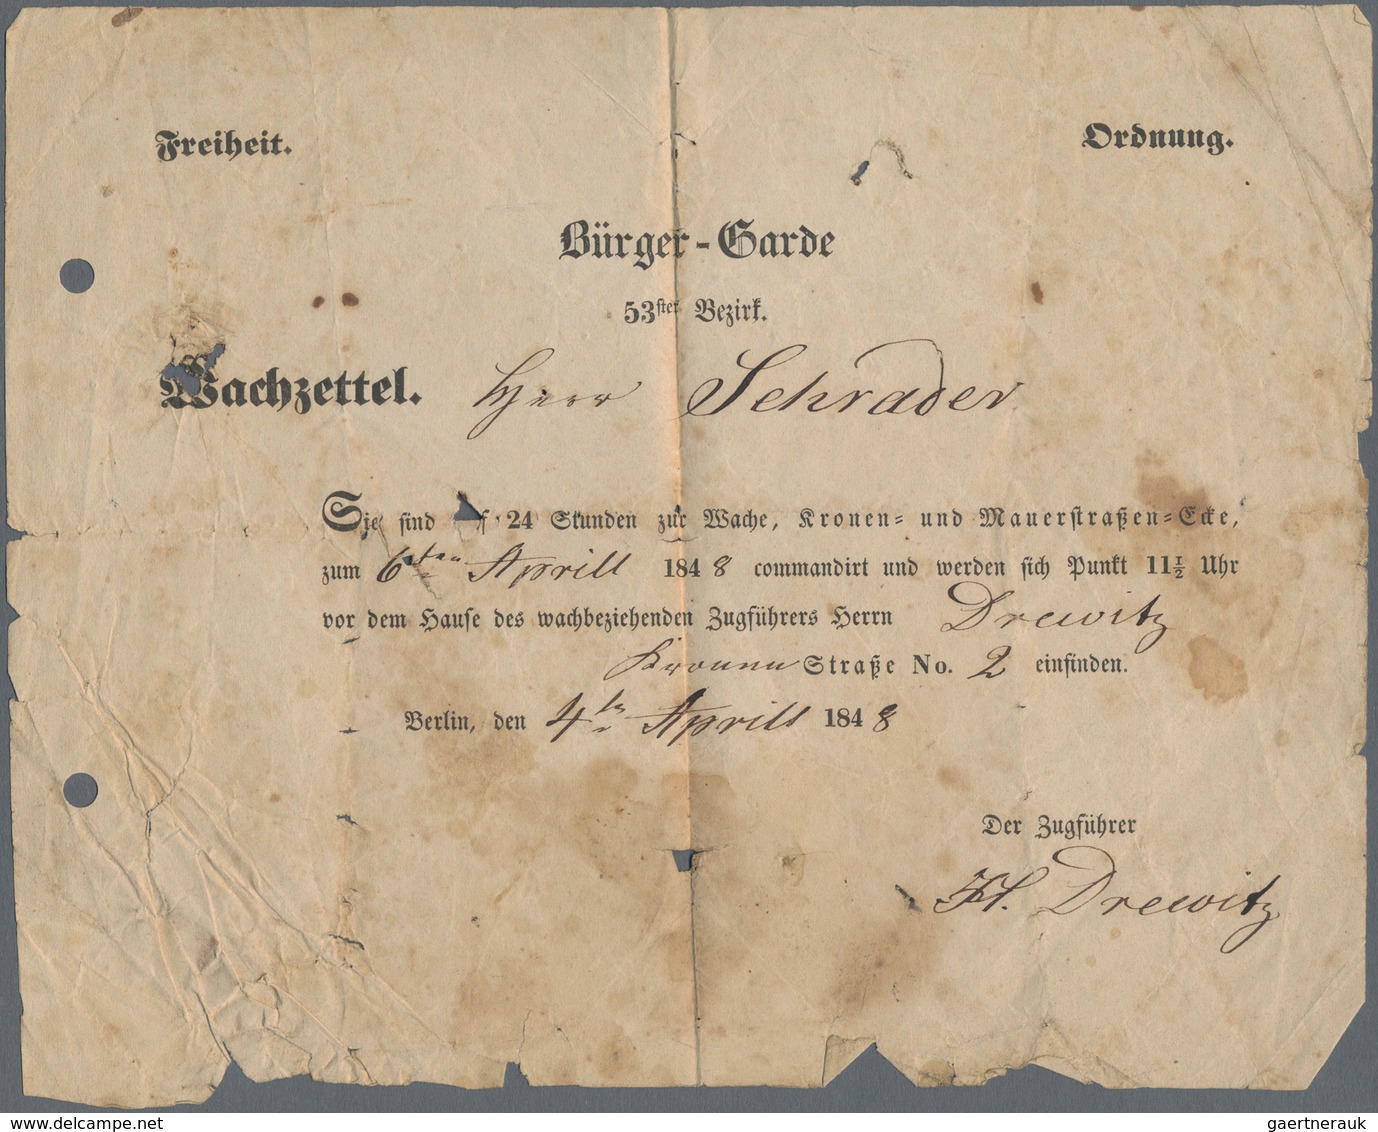 Freiheit. Ordnung.
Bürger-Garde
53ster Bezirk.
Wachzettel. Herr Schrader
Sie sind auf 24 Stunden zur Wache, Kronen- und Mauerstraßen-Ecke,
zum 6ten Aprill 1848 commandirt und werden sich Punkt 11½ Uhr
vor dem Hause des wachbeziehenden Zugführers Herrn Drewitz
Kronen Straße No. 2 einfinden.
Berlin, den 4ten Aprill 1848
Der Zugführer
Drewitz
www.delcampe.net
gaertnerauk